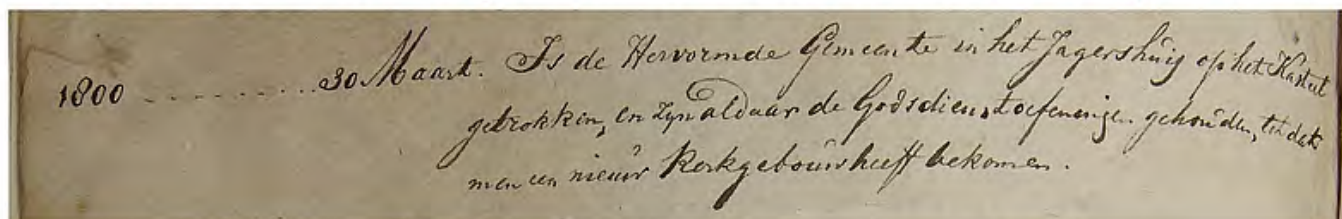 1800 ............ 30 Maart. Is de Hervormde Gemeente in het Jagershuis op het Kasteel
getrokken, en zijn aldaar de Godsdienstoefeningen gehouden, tot dat
men een nieuw Kerkgebouw heeft bekomen.